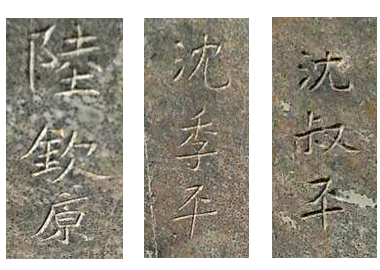 陸欽原
沈季平
沈叔平